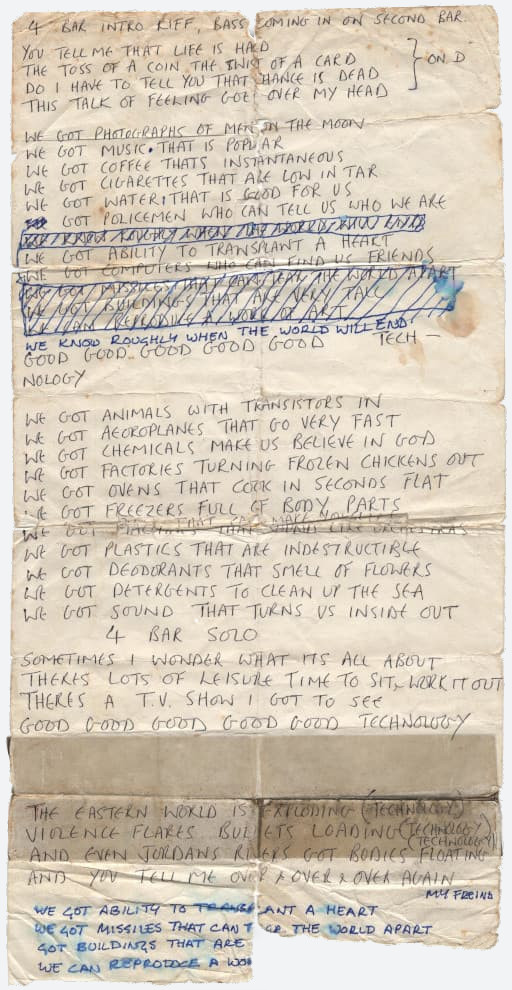 4 BAR INTRO RIFF, BASS COMING IN ON SECOND BAR.
YOU TELL ME THAT LIFE IS HARD
THE TOSS OF A COIN THE TWIST OF A CARD
ON D
DO I HAVE TO TELL YOU THAT CHANCE IS DEAD
THIS TALK OF FEELING GOES OVER MY HEAD
WE GOT PHOTOGRAPHS OF MEN ON THE MOON
WE GOT MUSIC THAT IS POPULAR
WE GOT COFFEE THATS INSTANTANEOUS
WE GOT CIGARETTES THAT ARE LOW IN TAR
WE GOT WATER THAT IS GOOD FOR US
GOT POLICEMEN WHO CAN TELL US WHO WE ARE
WE KNOW ROUGHLY WHEN THE WORLD WILL END
WE GOT ABILITY TO TRANSPLANT A HEART
WE GOT COMPUTERS WHO CAN FIND US FRIENDS
WE GOT MISSILES THAT CAN TEAR THE WORLD APART
WE GOT BUILDINGS THAT ARE VERY TALL
WE CAN REPRODUCE A WORK OF ART
WE KNOW ROUGHLY WHEN THE WORLD WILL END
GOOD GOOD GOOD GOOD GOOD TECH-
NOLOGY
WE GOT ANIMALS WITH TRANSISTORS IN
WE GOT AEROPLANES THAT GO VERY FAST
WE GOT CHEMICALS MAKE US BELIEVE IN GOD
WE GOT FACTORIES TURNING FROZEN CHICKENS OUT
WE GOT OVENS THAT COOK IN SECONDS FLAT
WE GOT FREEZERS FULL OF BODY PARTS
WE GOT MACHINES THAT SOUND LIKE ORCHESTRAS
WE GOT PLASTICS THAT ARE INDESTRUCTIBLE
WE GOT DEODORANTS THAT SMELL OF FLOWERS
WE GOT DETERGENTS TO CLEAN UP THE SEA
WE GOT SOUND THAT TURNS US INSIDE OUT
4 BAR SOLO
SOMETIMES I WONDER WHAT ITS ALL ABOUT
THERES LOTS OF LEISURE TIME TO SIT & WORK IT OUT
THERES A T.V. SHOW I GOT TO SEE
GOOD GOOD GOOD GOOD GOOD TECHNOLOGY
THE EASTERN WORLD IS EXPLODING (TECHNOLOGY)
VIOLENCE FLARES BULLETS LOADING (TECHNOLOGY)
(TECHNOLOGY)
AND EVEN JORDANS RIVERS GOT BODIES FLOATING
AND YOU TELL ME OVER & OVER & OVER AGAIN
MY FREIND
WE GOT ABILITY TO TRANSPLANT A HEART
WE GOT MISSILES THAT CAN T OR THE WORLD APART
GOT BUILDINGS THAT ARE
WE CAN REPRODUCE A WO